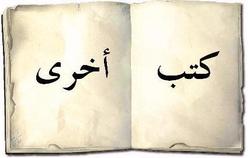 كتب أخرى